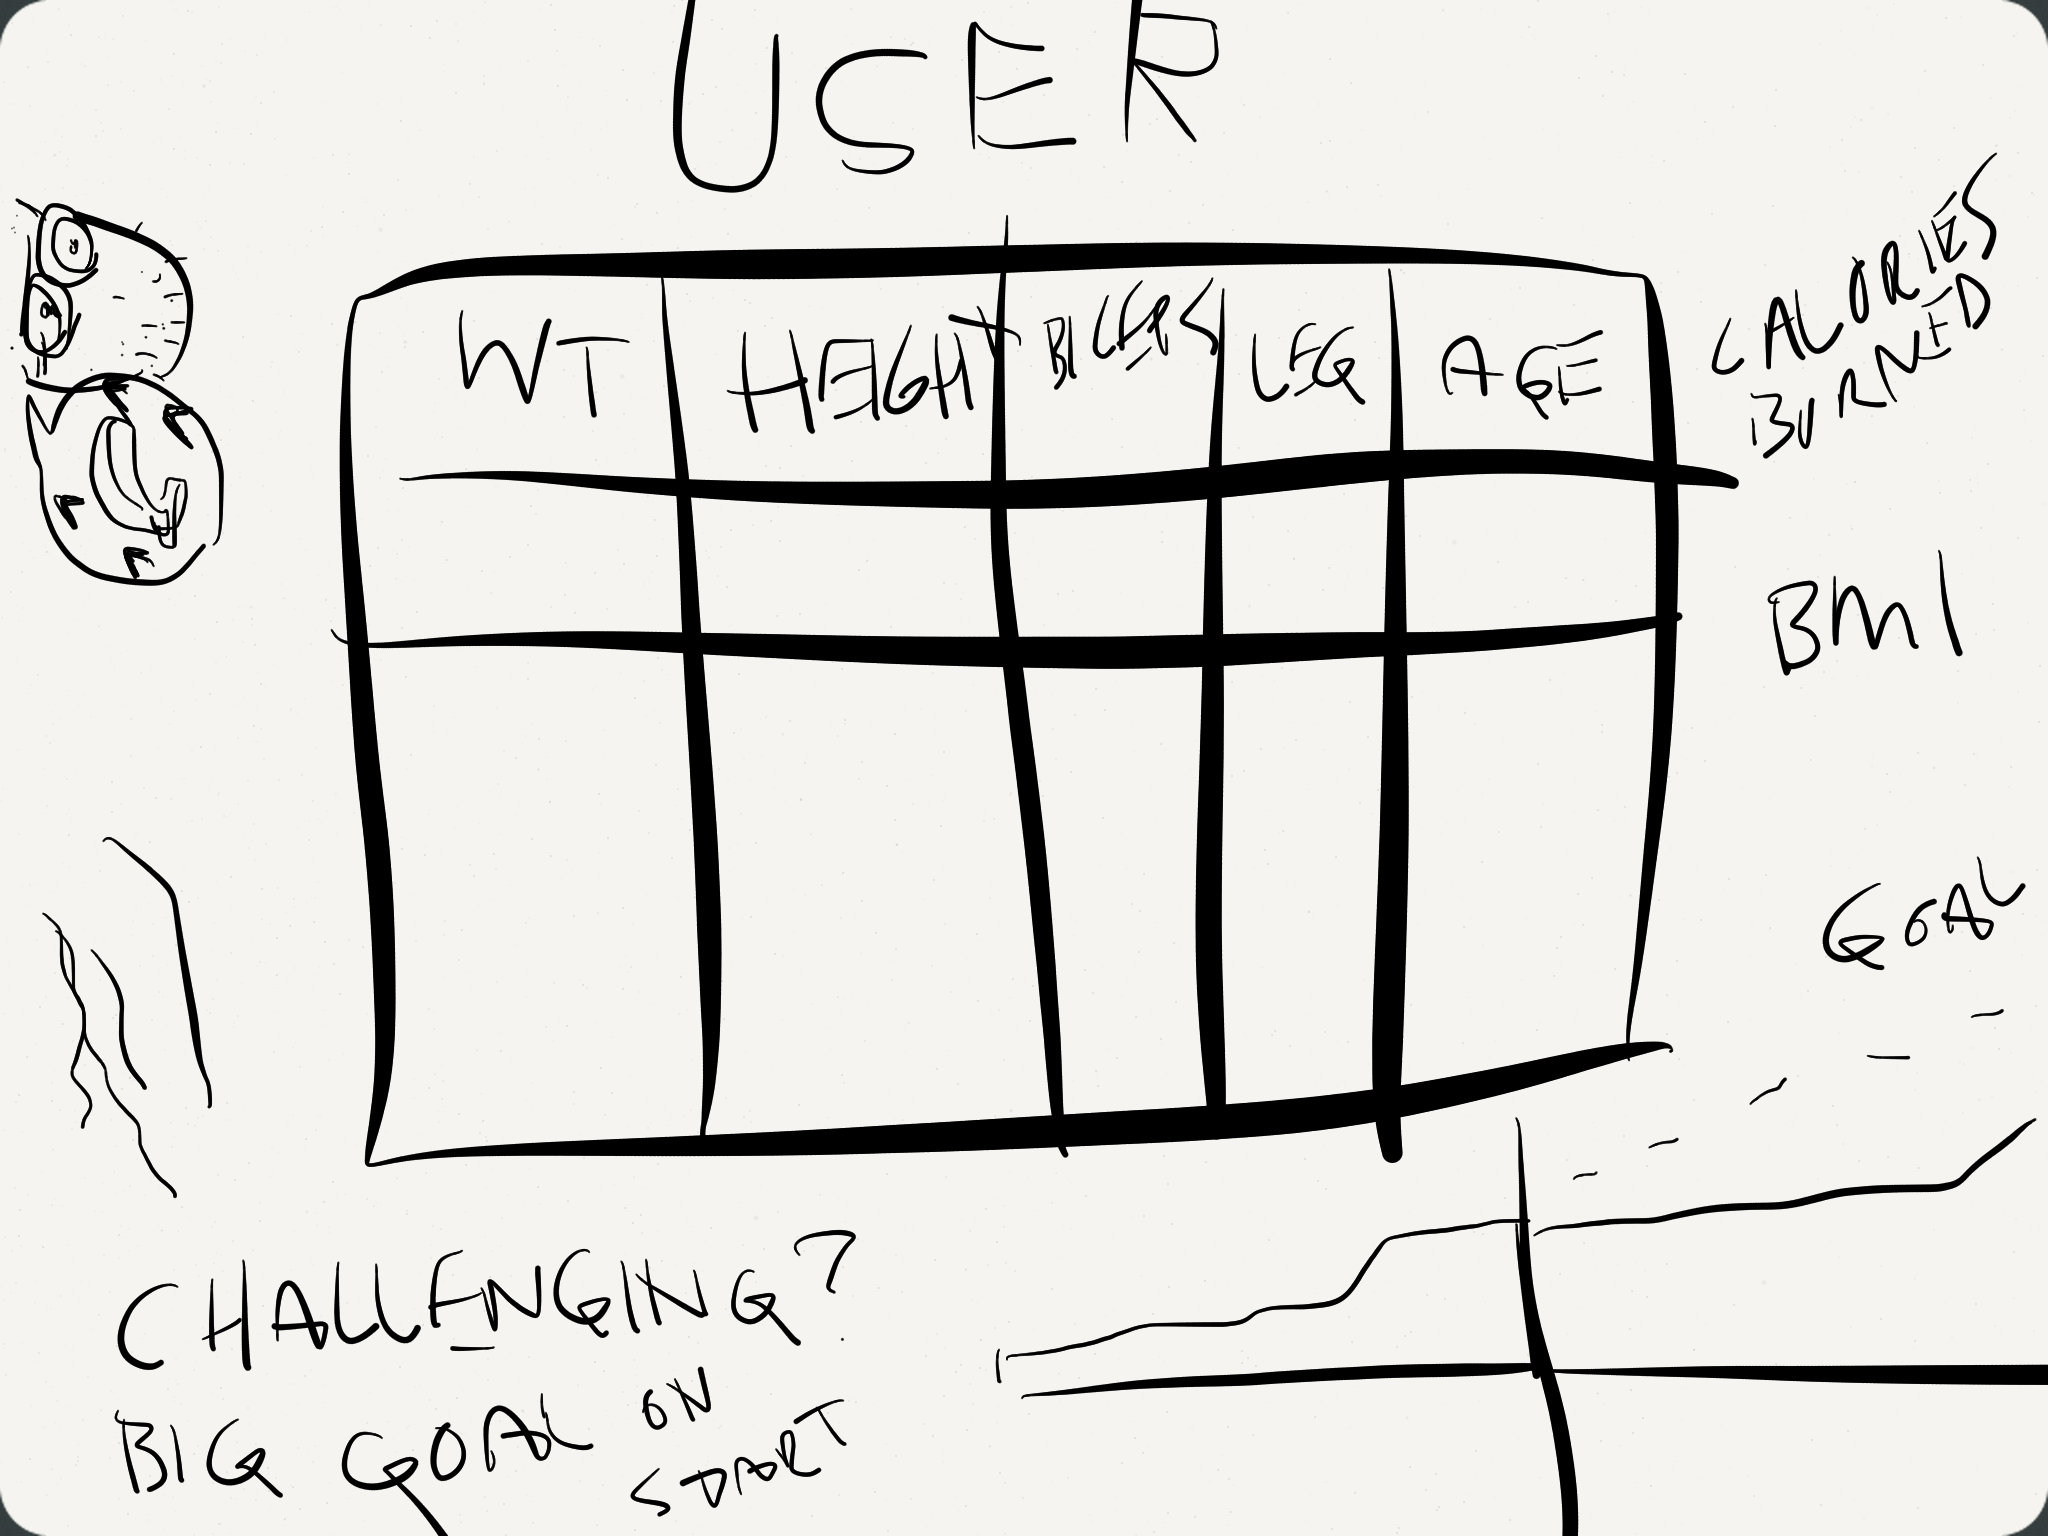 USER
WT HEIGHT BICEPS LEG AGE
CALORIES
BURNED
BMI
GOAL
CHALLENGING?
BIG GOAL ON
START